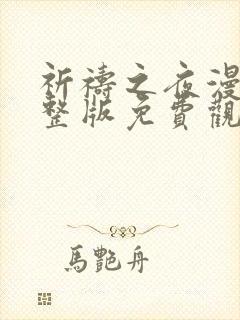 祈禱之夜漫
整版免費觀
馬艷舟